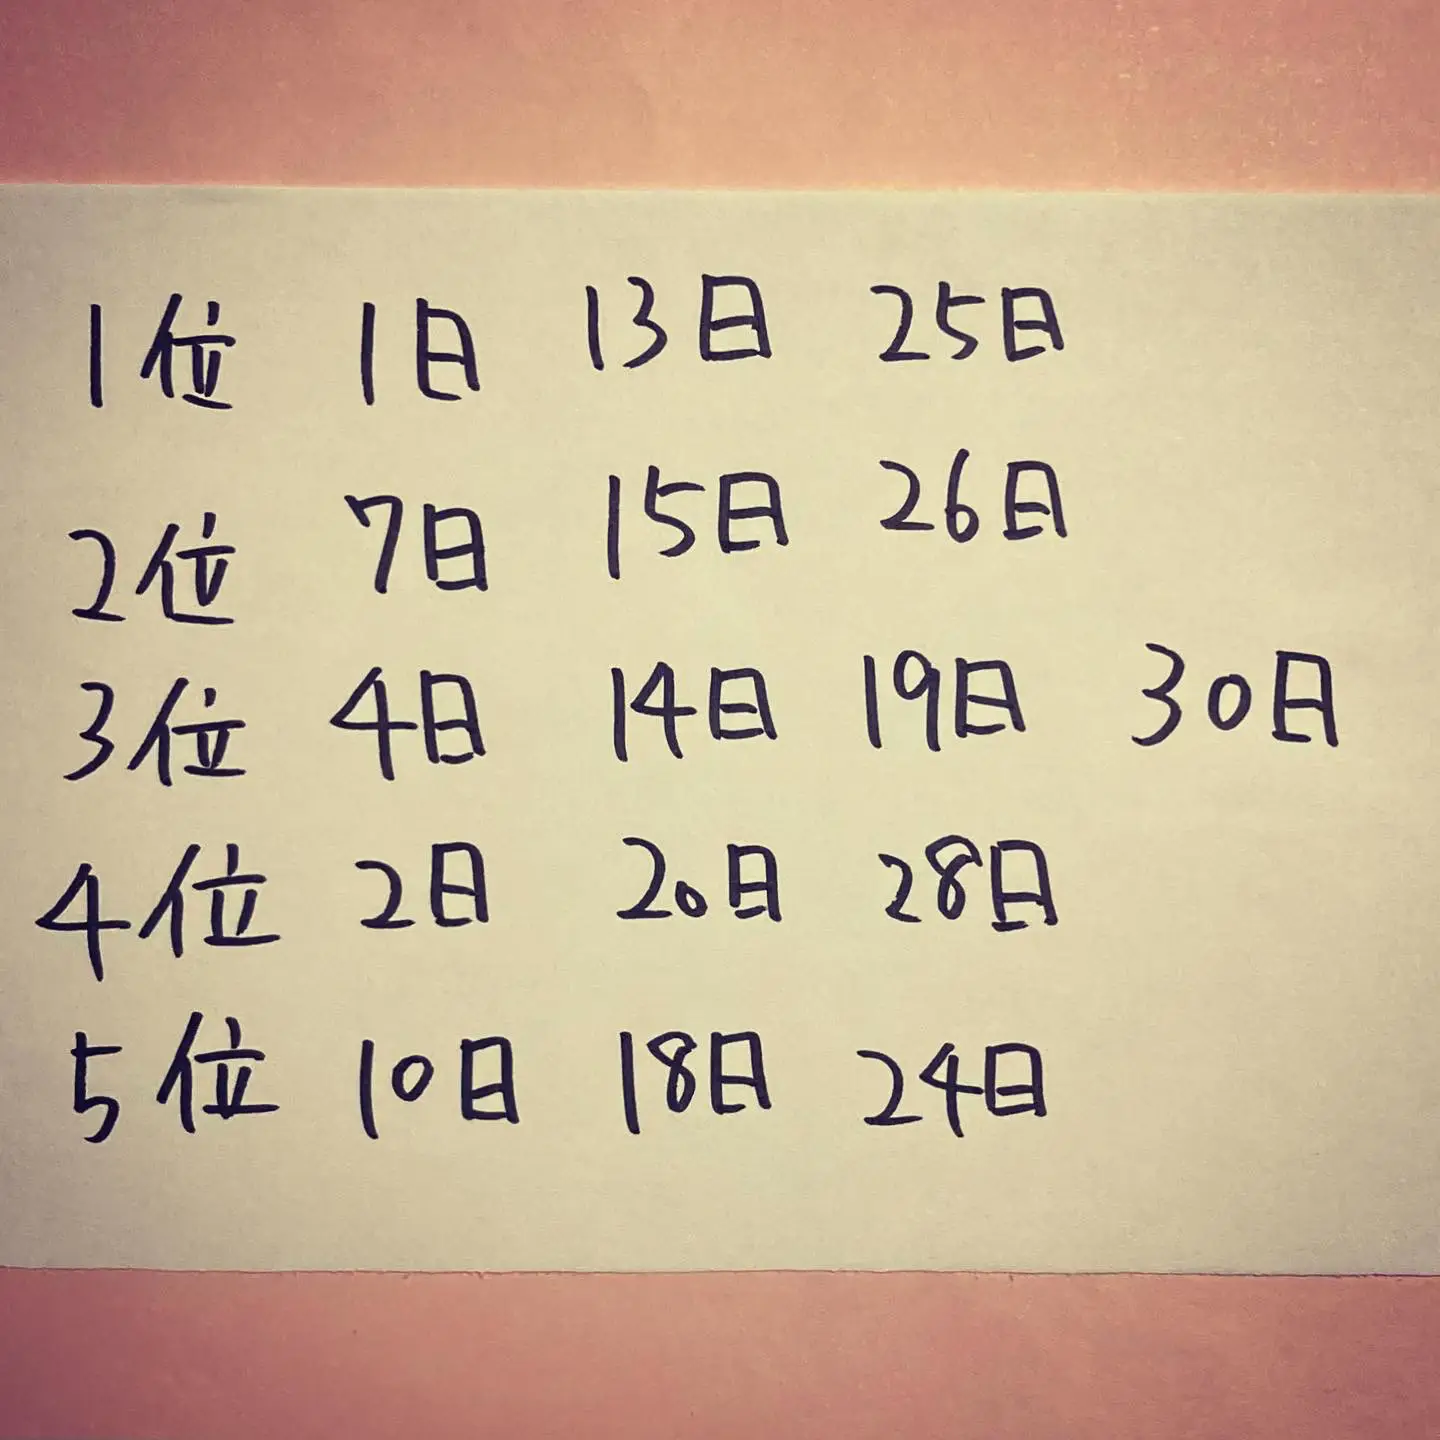 1位 1日 13日 25日
2位 7日 15日 26日
3位 4日 14日 19日 30日
4位 2日 20日 28日
5位 10日 18日 24日